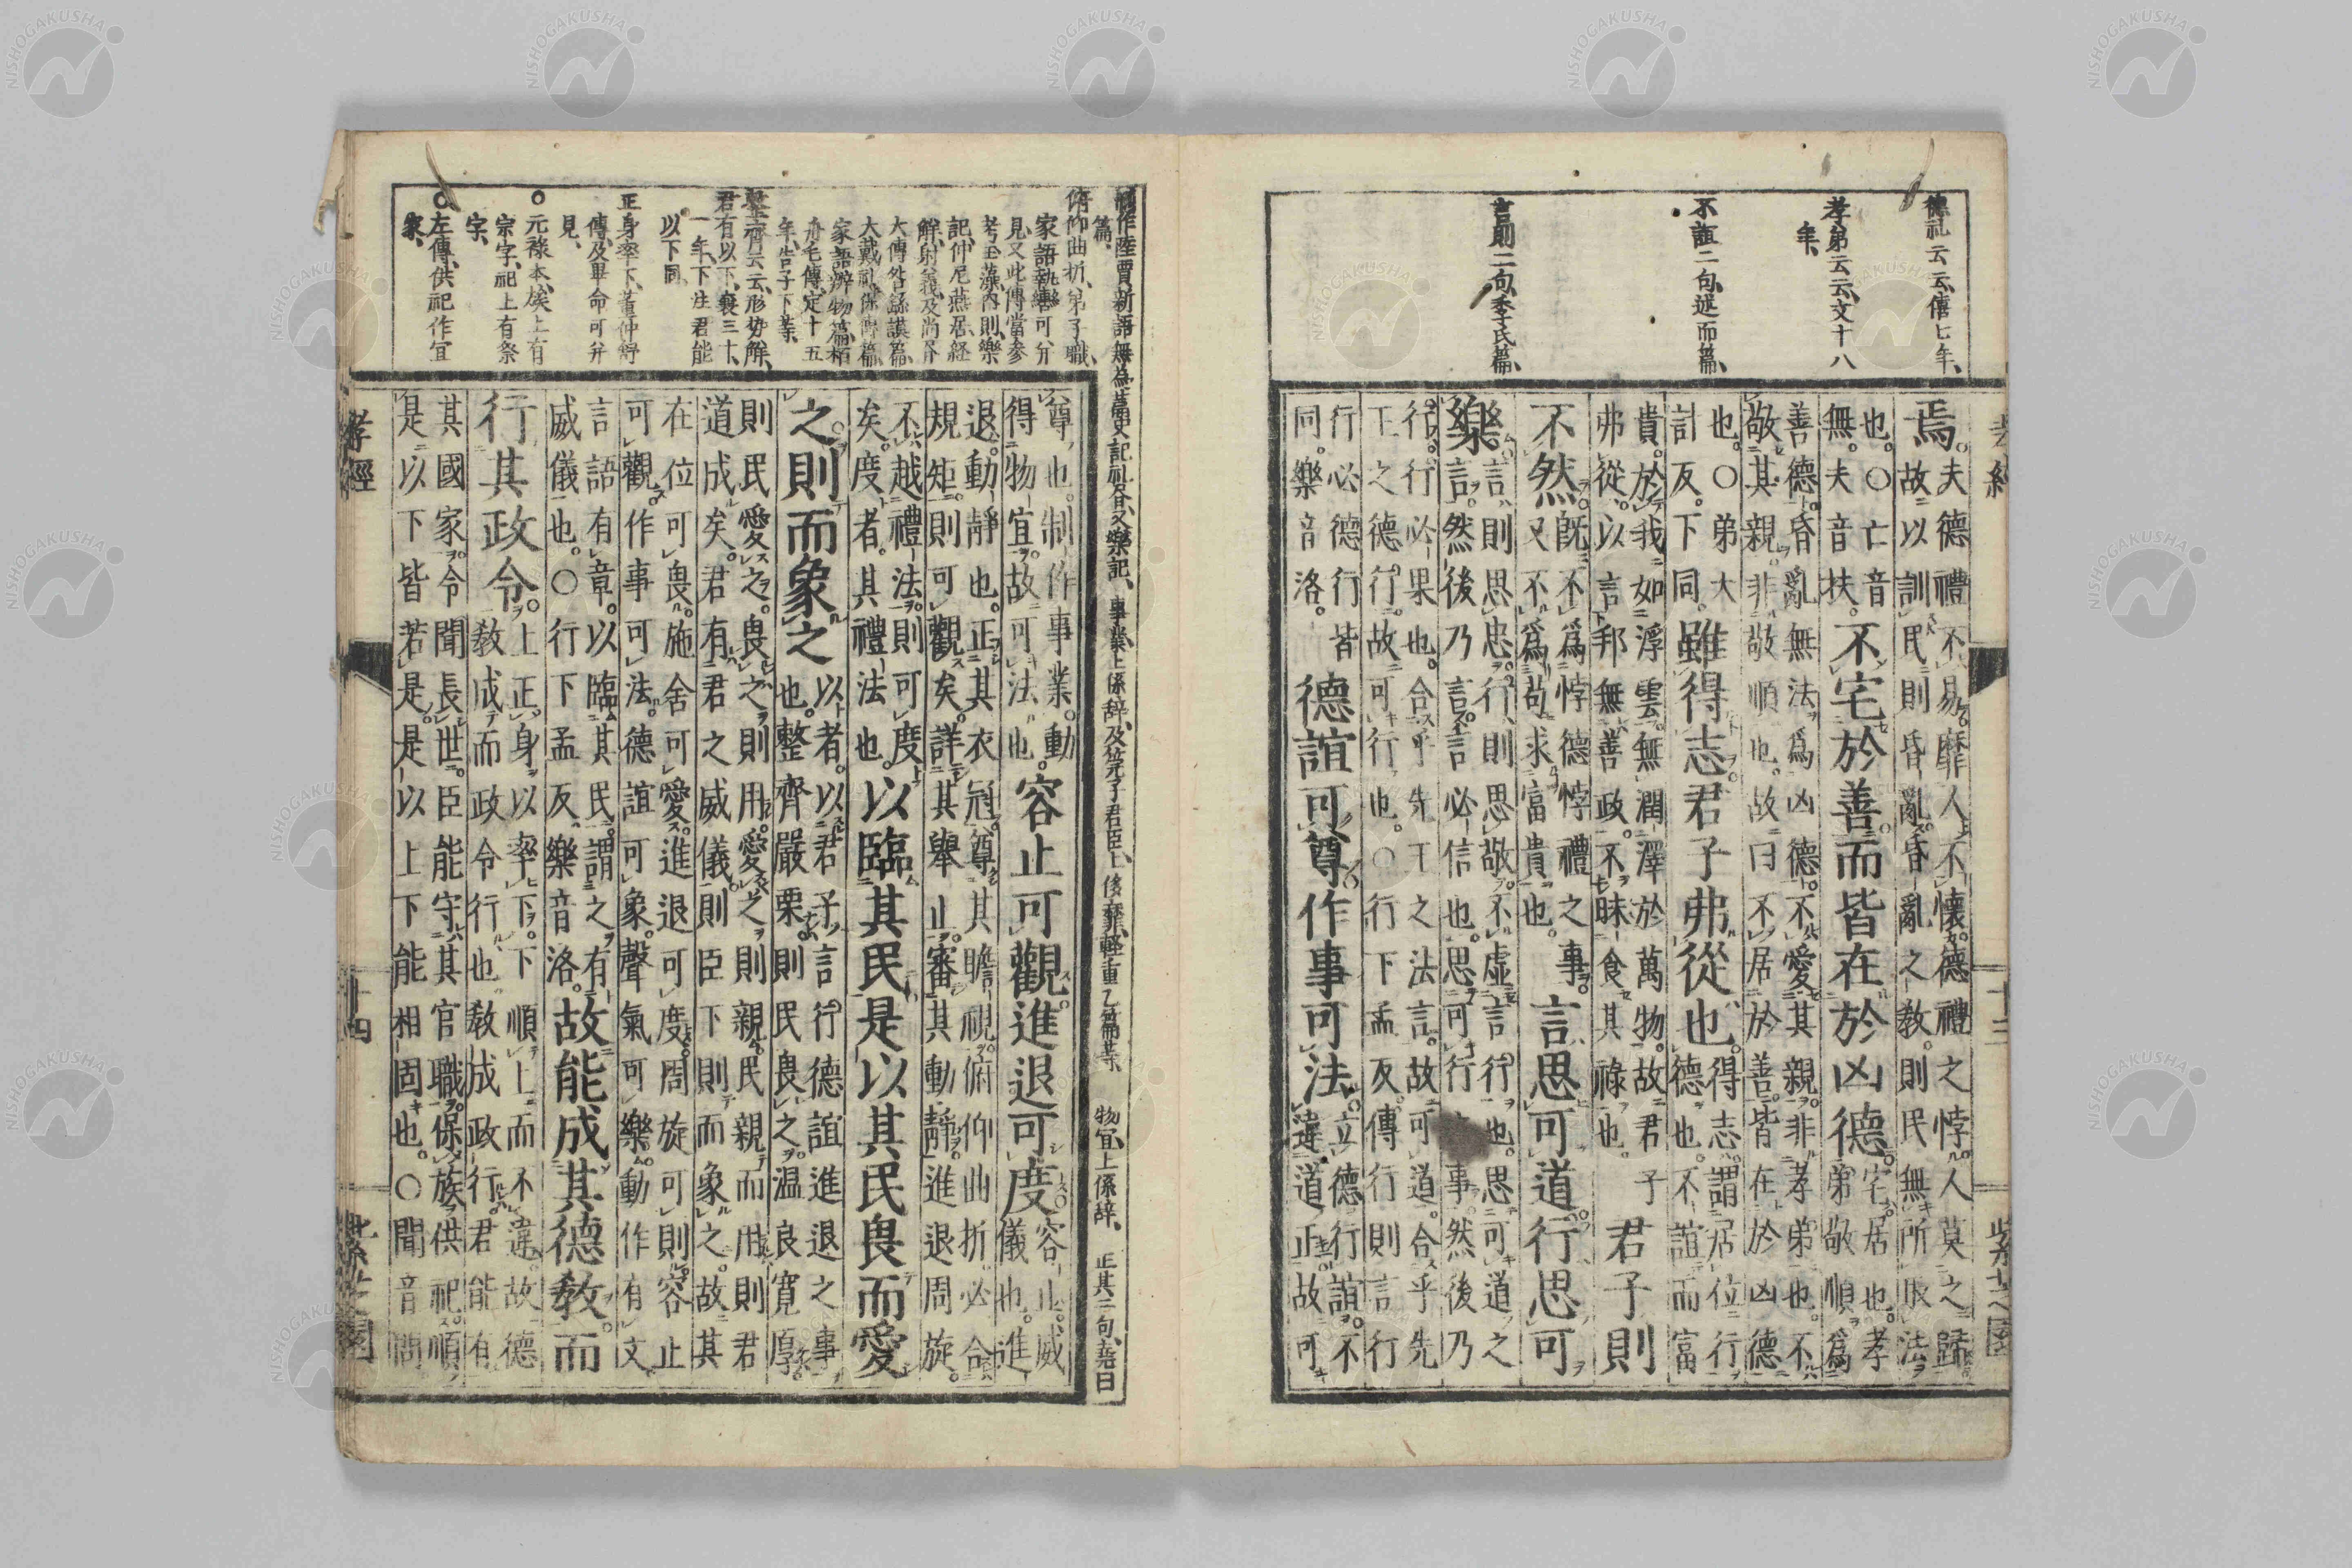 德礼云云、僖七年、
孝弟云云、文十八
年、
不誼二句、述而篇、
言則二句、季氏篇、
焉。夫德禮不易靡人不懷德禮之悖人莫之歸
故以訓民則昏亂昏亂之教則民無所取法
也。〇亡音
無。夫音扶。不宅於善而皆在於凶德。宅居也。孝
弟敬順爲
善德昏亂無法爲凶德不愛其親非孝弟也。不
敬其親非敬順也。故曰不居於善皆在於凶德
也。〇弟大
計反。下同。雖得志君子弗從也。得志謂居位行
德也。不誼而富
貴於我如浮雲無潤澤於萬物。故君子
弗從。以言邦無善政。不昧食其祿也。君子則
不然旣不爲悖德悖禮之事。
又不爲苟求富貴也。言思可道行思可
樂言則思忠行則思敬不虛言行也。思可道之
言。然後乃言言必信也。思可行事然後乃
行。行必果也。合乎先王之法言。故可道合乎先
王之德行。故可行也。〇行下孟反傳行則言行
行必德行皆
同。樂音洛。德誼可尊作事可法。立德行誼。不
違道正。故可
孝經
十三
制作、陸賈新語無為篇、史記礼書又樂記、事業上係辞、及管子君臣上、後彝軽重乙篇等、物宜上係辞、正其三句、堯曰
篇、
俯仰曲折、弟子職、
家語執轡可、分
見、又此傳當參
考、玉藻、内則、樂
記、仲尼燕居、経
解、射義、及尚書
大傳咎繇謨篇、
大戴礼保傅篇、
家語辨物篇、栢
舟毛傳、定十五
年、告子下等、
整齊云云、形勢解、
君有以下、襄三十
一年、下注君能
以下同、
正身率下、董仲舒
傳、及畢命可并
見、
〇元祿本、侯上有
宗字、祀上有祭
字、
〇左傳、供祀作宜
家、
尊也。制作事業。動
得物宜。故可法也。容止可觀進退可度容止。威
儀也。進
退。動靜也。正其衣冠尊其瞻視。俯仰曲折必合
規矩。則可觀矣。詳其舉止。審其動靜。進退周旋。
不越禮法。則可度
矣。度者。其禮法也。以臨其民是以其民畏而愛
之則而象之以者。以君子言行德誼進退之事
也。整齊嚴栗。則民畏之。温良寬厚。
則民愛之。畏之則用。愛之則親。民親而用則君
道成矣。君有君之威儀。則臣下則而象之。故其
在位可畏。施舍可愛。進退可度。周旋可則。容止
可觀。作事可法。德誼可象。聲氣可樂。動作有文。
言語有章。以臨其民。謂之有
威儀也。〇行下孟反。樂音洛。故能成其德教。而
行其政令。上正身以率下。下順上而不違。故德
教成而政令行也。教成政行。君能有
其國家。令聞長世。臣能守其官職。保族供祀。順
是以下皆若是。是以上下能相固也。〇聞音問
孝經
十四
紫芝園